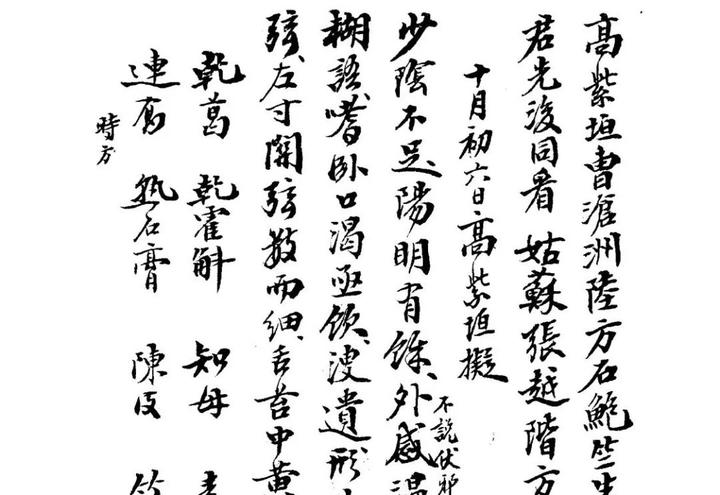 高紫垣曹滄洲陸方石鮑竺生
君先後同看 姑蘇張越階方
十月初六日高紫垣擬
少陰不足陽明有餘、外感温
不説伏邪
糊語、嗜卧口渴亟飲、溲遺形
弦、左寸關弦数而細、舌苔中黄
乾葛 乾霍斛 知母
連 石膏 陳皮
時方